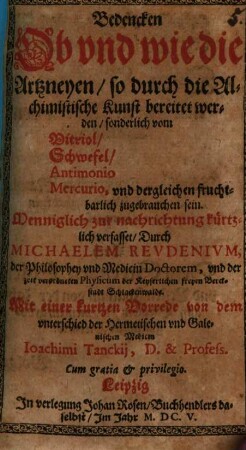 Bedencken
5.
Ob vnd wie die
Artzneyen / so durch die Al-
chimistische Kunst bereitet wer-
den / sonderlich vom
Vitriol /
Schwefel /
Antimonio
Mercurio, vnd dergleichen frucht-
barlich zugebrauchen sein.
Menniglich zur nachrichtung kürtz-
lich verfasset / Durch
MICHAELEM REVDENIVM,
der Philosophey vnd Medicin Doctorem, vnd der
zeit verordneten Physicum der Keyserlichen freyen Berck-
stadt Schlackenwalde.
Mit einer kurtzen Vorrede von dem
vnterschied der Hermetischen vnd Gale-
nischen Medicin
Ioachimi Tanckij, D. & Profess.
Cum gratia & privilegio.
Leipzig
In verlegung Johan Rosen / Buchhendlers da-
selbst / Im Jahr M. DC. V.